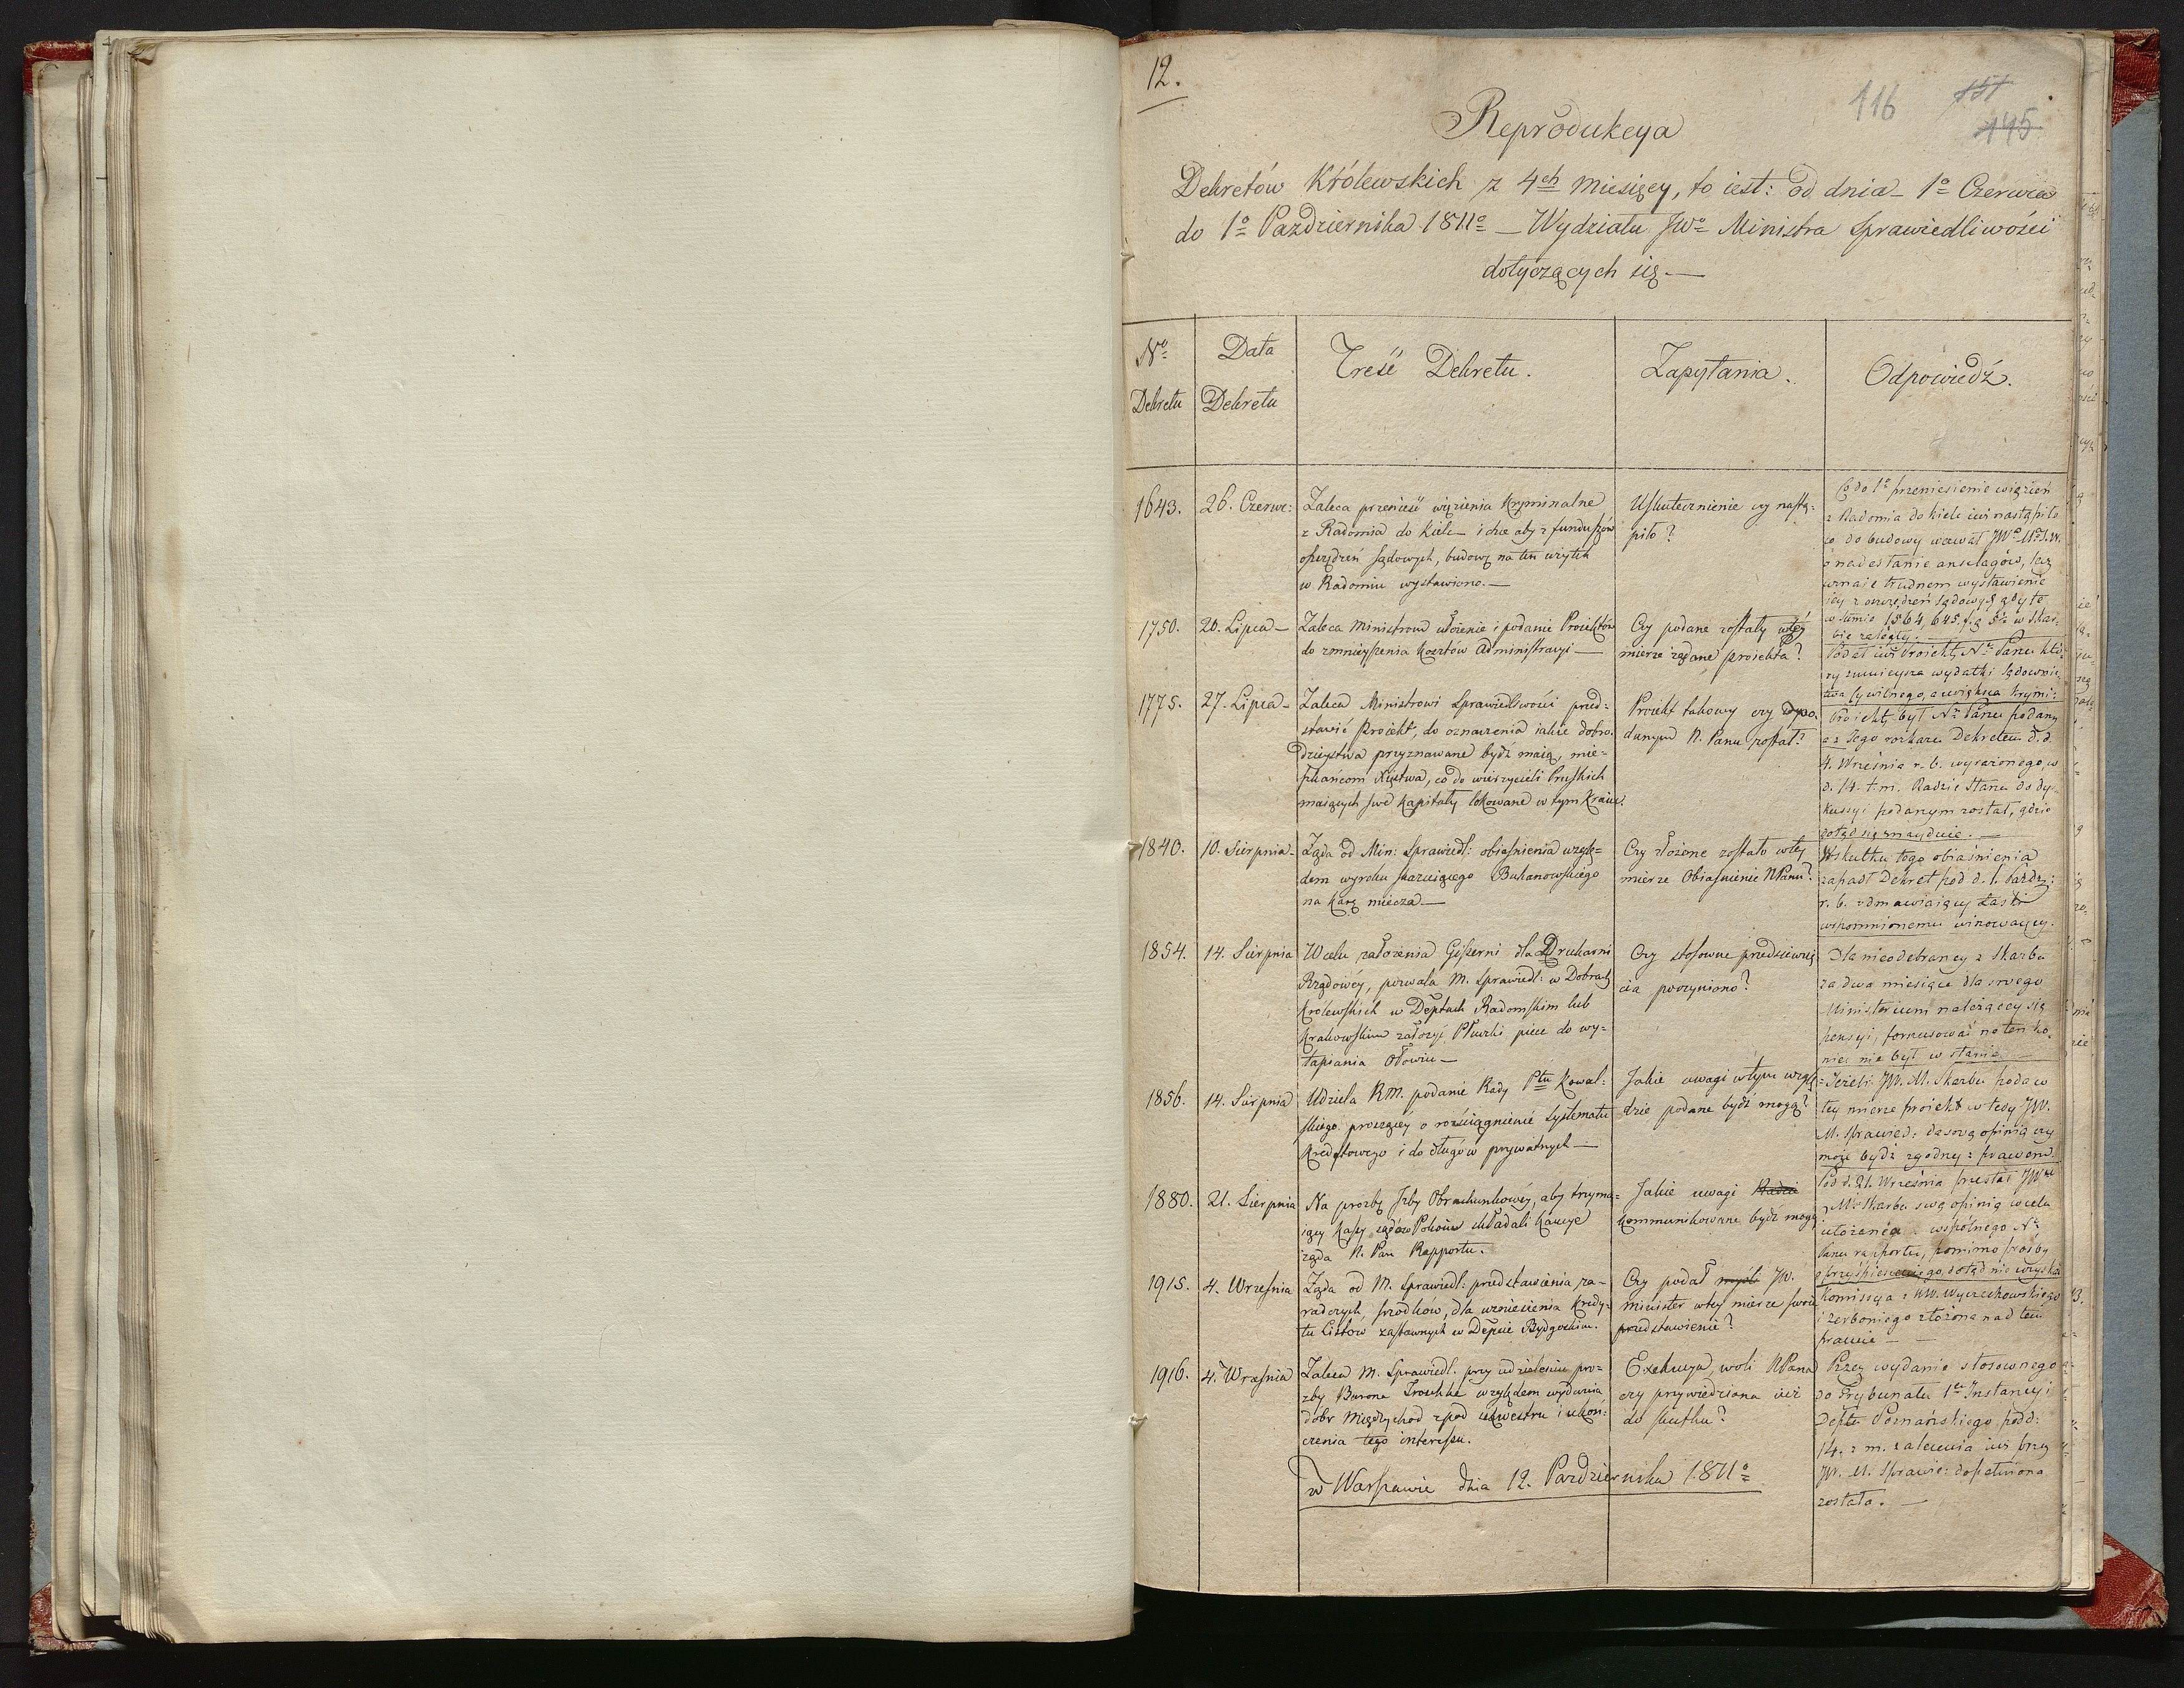 12.
116 151
145
Reprodukcya
Dekretów Królewskich z 4ch miesięcy, to iest: od dnia 1o Czerwca
do 1o Pazdziernika 1811o — Wydziału JWo Ministra Sprawiedliwości
dotyczących się. —
No Dekretu
Data Dekretu
Treść Dekretu.
Zapytania.
Odpowiedź.
1643.
26. Czerwc:
Zaleca przenieść więzienia kryminalne
z Radomia do Kielc — i chce aby z funduszów
oszczędzeń sądowych, budowę na ten użytek
w Radomiu wystawiono. —
Uskutecznienie czy nastą-
piło?
Co do 1o przeniesienie więzień
z Radomia do Kielc iuż nastąpiło
co do budowy wezwał JWo
o nadesłanie anszlagów, lecz
uznaie trudnem wystawienie
iey z oszczędzeń sądowych gdy te
w sumie 1564,645. w Skar-
bie zaległy. —
1750.
20. Lipca —
Zaleca Ministrom ułożenie i podanie Proiektów
do zmnieyszenia kosztów Administracyi —
Czy podane zostały w tey
mierze żądane proiekta?
Podał iuż Proiekt, No Panu któ-
ry zmnieysza wydatki Sądownic-
twa Cywilnego, a zwiększa krymi:
1775.
27. Lipca —
Zaleca Ministrowi Sprawiedliwości przed-
stawić Proiekt, do oznaczenia iakie dobro-
dzieystwa przyznawane bydź maią, mie-
szkańcom Xięstwa, co do wierzycieli Pruskich
maiących swe kapitały lokowane w tym Kraiu.
Proiekt takowy czy
danym N. Panu został?
Proiekt, był No Panu podany
a z Jego rozkazu Dekretem d. d.
4. Września r. b. wyrażonego, w
d. 14. t. m. Radzie Stanu do dy-
skussyi podanym został, gdzie
dotąd się znayduie. —
1840.
10. Sierpnia —
Żąda od Min: Sprawiedl: obiaśnienia wzglę-
dem wyroku skazuiącego Bukanowskiego
na karę miecza —
Czy złożone zostało w tey
mierze Obiaśnienie NPanu?
Wskutku tego obiaśnienia
zapadł Dekret pod d. 1. Paźdz:
r. b. odmawiaiący łaski
wspomnionemu winowaycy.
1854.
14. Sierpnia
W celu założenia Giserni dla Drukarni
Rządowéy, pozwala M. Sprawiedl: w Dobrach
Królewskich w Deptach Radomskim lub
Krakowskim założyć Płuczki piece do wy-
tapiania Ołowiu —
Czy stosowne przedsiewzię
cia poczyniono?
Dla nieodebraney z Skarbu
za dwa miesiące dla swego
Ministerium należącey się
pensyi, forszusować na ten ko-
niec nie był w stanie. —
1856.
14. Sierpnia
Udziela RM. podanie Rady Ptu Kowal:
skiego proszącey o rozciągnienie systematu
Kredytowego i do długów prywatnych —
Jakie uwagi w tym wzglę-
dzie podane bydź mogą?
Jeżeli JW. M. Skarbu poda w
tey mierze proiekt w tedy JW.
M. Sprawied: da swą opinią czy
może bydź zgodny z prawem.
1880.
21. Sierpnia
Na prozbę Izby Obrachunkowéy, aby trzyma-
iący kassy sądów Pokoiu składali Kaucye
żąda N. Pan Rapportu.
Jakie uwagi Radzie
kommunikowane bydź mogą
Pod d. 21. Września przesłał JW
M. Skarbu swą opinią w celu
ułożenia wspólnego No
Panu raportu, pomimo prośby
o przyśpieszenie go dotąd nie uzyskał
1915.
4. Września
Żąda od M. Sprawiedl: przedstawienia za-
radczych srodków, dla wzniesienia kredy-
tu Listów zastawnych w Depcie Bydgoskim.
Czy podał myśli JW.
minister w tey mierze swoie
przedstawienie?
Komissya z JW. Wyczechowskiego
i Zerboniego złożona nad tem
pracuie —
1916.
4. Września
Zaleca M. Sprawiedl. przy udzieleniu pro-
zby Barona Troschke względem wydania
dobr Międzychod z pod sekwestru i ukoń-
czenia tego interessu.
Exekucya, woli NPana
czy przywiedziona iuż
do skutku?
Przez wydanie stosownego
do Trybunału 1ey Instancyi
Deptu Poznańskiego pod d:
14. z. m. zalecenia iuż przez
JW. M. Sprawie: dopełniona
została. —
w Warszawie dnia 12. Pazdziernika 1811o